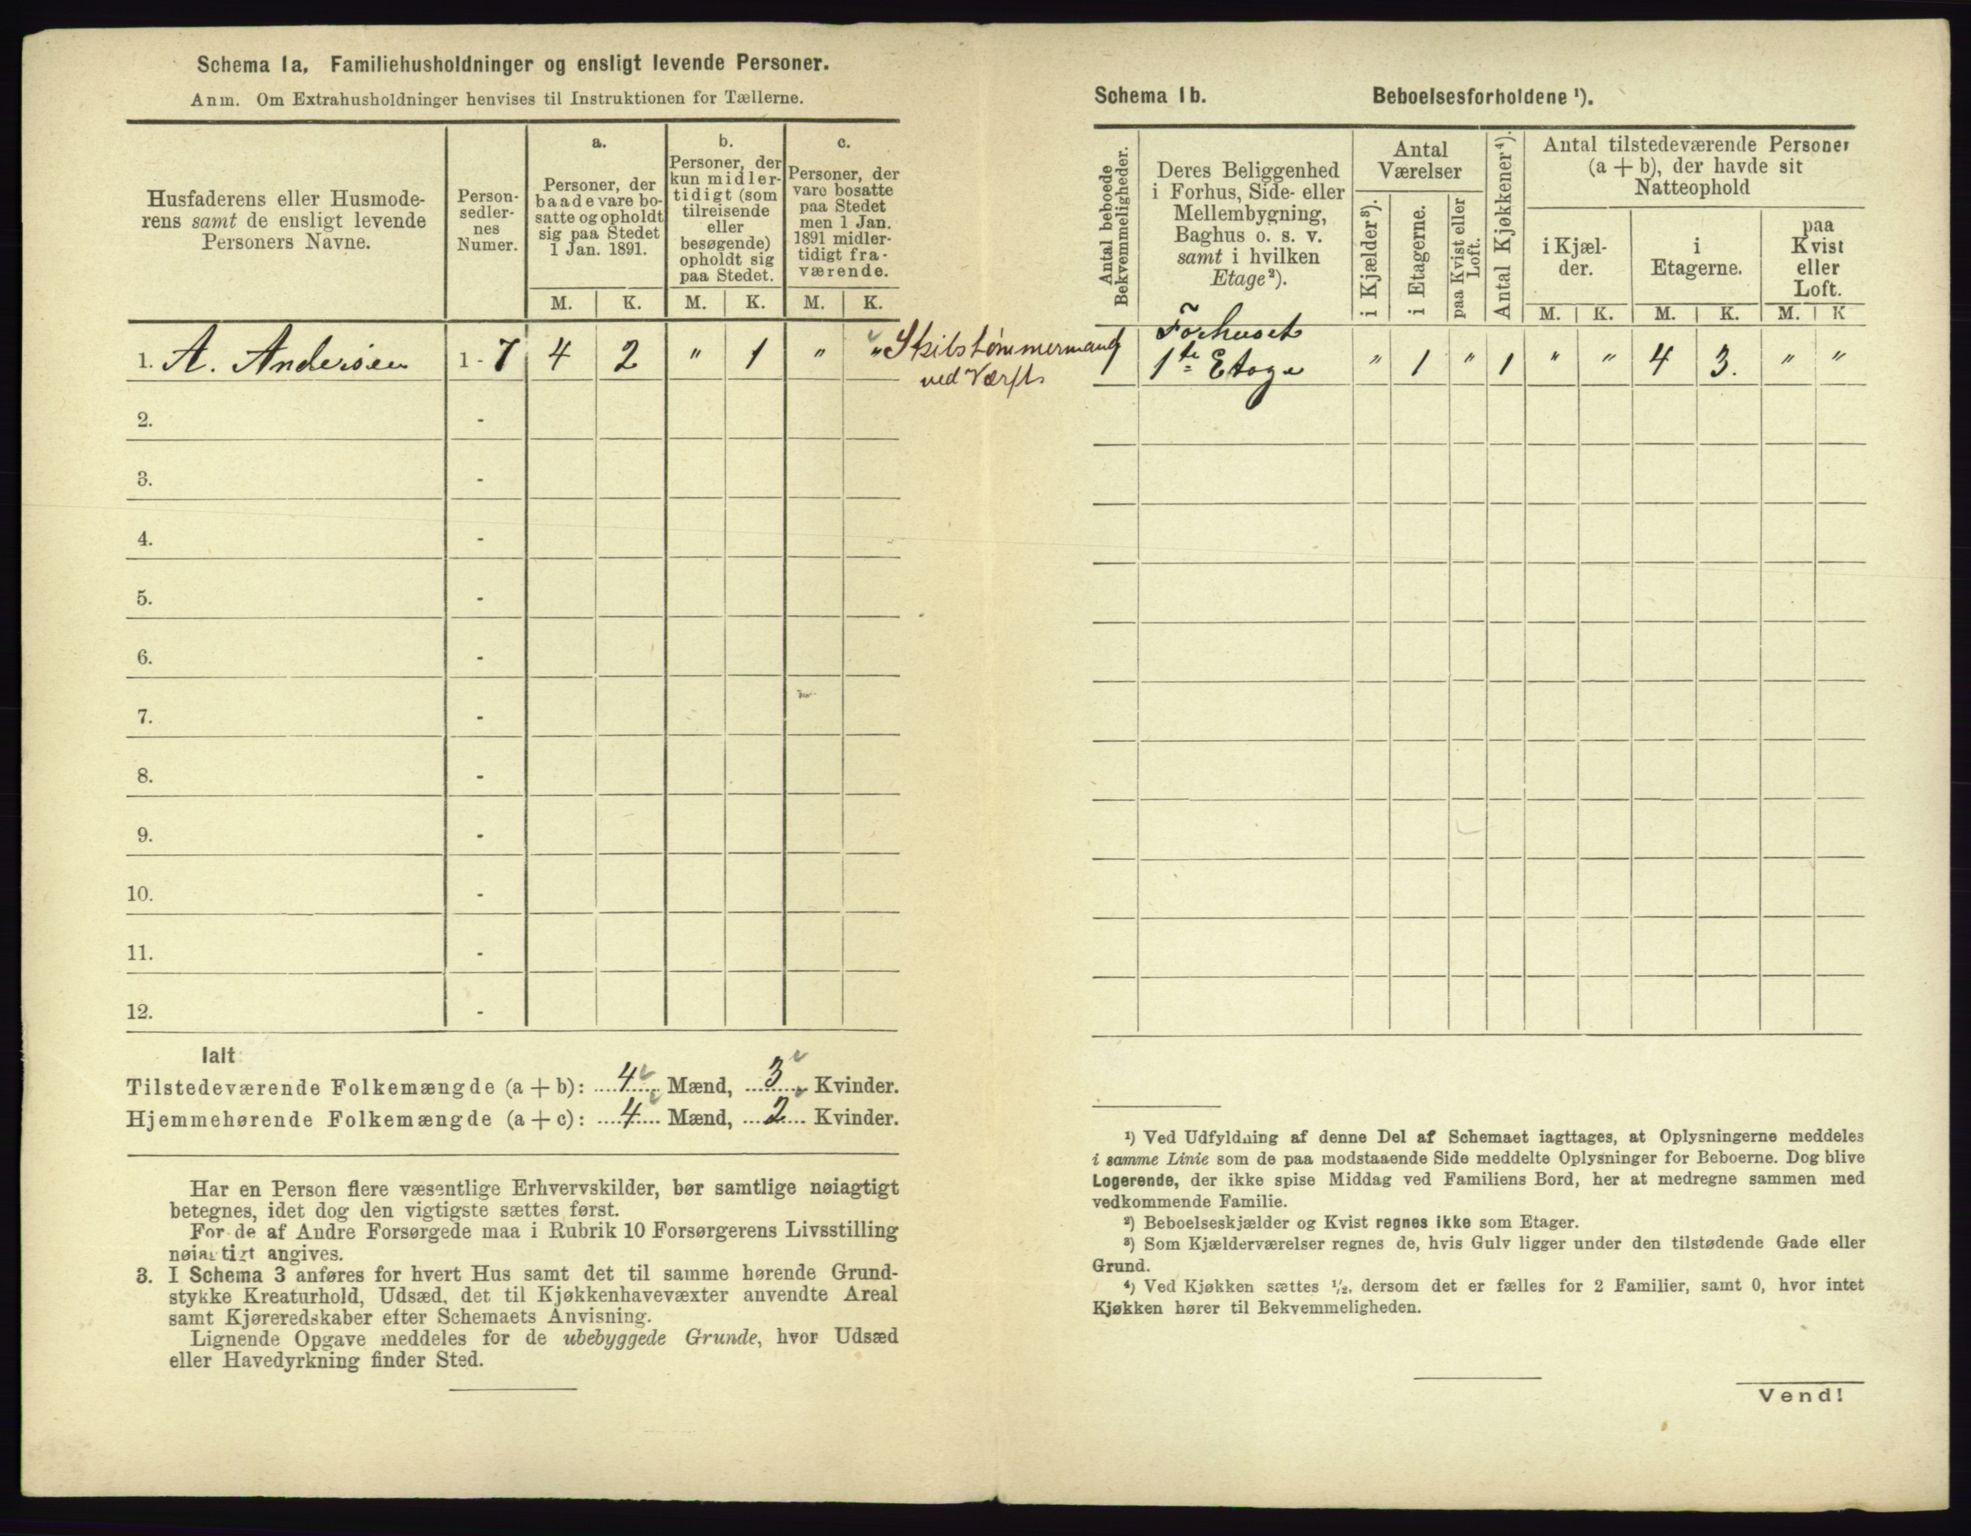 Schema 1a. Familiehusholdninger og ensligt levende Personer.
Anm. Om Extrahusholdninger henvises til Instruktionen for Tællerne.
Husfaderens eller Husmode-
rens samt de ensligt levende
Personers Navne.
Person-
sedler-
nes
Numer.
a.
Personer, der
baade vare bo-
satte og opholdt
sig paa Stedet
1 Jan. 1891.
b.
Personer, der
kun midler-
tidigt (som
tilreisende
eller
besøgende)
opholdt sig
paa Stedet.
c.
Personer, der
vare bosatte
paa Stedet
men 1 Jan.
1891 midler-
tidigt fra-
værende.
M. K. M. K. M. K.
1. A. Andersen 1-7 4 2 " 1 " " Skibstømmermand
ved Værft
2. -
3. -
4. -
5. -
6. -
7. -
8. -
9. -
10. -
11. -
12. -
Ialt
Tilstedeværende Folkemængde (a + b): 4 Mænd, 3 Kvinder.
Hjemmehørende Folkemængde (a + c): 4 Mænd, 2 Kvinder.
Har en Person flere væsentlige Erhvervskilder, bør samtlige nøiagtigt
betegnes, idet dog den vigtigste sættes først.
For de af Andre Forsørgede maa i Rubrik 10 Forsørgerens Livsstilling
nøiagtigt angives.
3. I Schema 3 anføres for hvert Hus samt det til samme hørende Grund-
stykke Kreaturhold, Udsæd, det til Kjøkkenhavevæxter anvendte Areal
samt Kjøreredskaber efter Schemaets Anvisning.
Lignende Opgave meddeles for de ubebyggede Grunde, hvor Udsæd
eller Havedyrkning finder Sted.
Schema 1b. Beboelsesforholdene ¹).
Antal beboede
Bekvemmeligheder.
Deres Beliggenhed
i Forhus, Side- eller
Mellembygning,
Baghus o. s. v.
samt i hvilken
Etage²).
Antal
Værelser
i Kjælder³).
i Etagerne.
paa Kvist eller
Loft.
Antal Kjøkkener⁴).
Antal tilstedeværende Personer
(a + b), der havde sit
Natteophold
i Kjæl-
der.
i
Etagerne.
paa
Kvist
eller
Loft.
M. K. M. K. M. K
Forhuset
1 1te Etage " 1 " 1 " " 4 3. " "
¹) Ved Udfyldning af denne Del af Schemaet iagttages, at Oplysningerne meddeles
i samme Linie som de paa modstaaende Side meddelte Oplysninger for Beboerne. Dog blive
Logerende, der ikke spise Middag ved Familiens Bord, her at medregne sammen med
vedkommende Familie.
²) Beboelseskjælder og Kvist regnes ikke som Etager.
³) Som Kjælderværelser regnes de, hvis Gulv ligger under den tilstødende Gade eller
Grund.
⁴) Ved Kjøkken sættes ½, dersom det er fælles for 2 Familier, samt 0, hvor intet
Kjøkken hører til Bekvemmeligheden.
Vend!